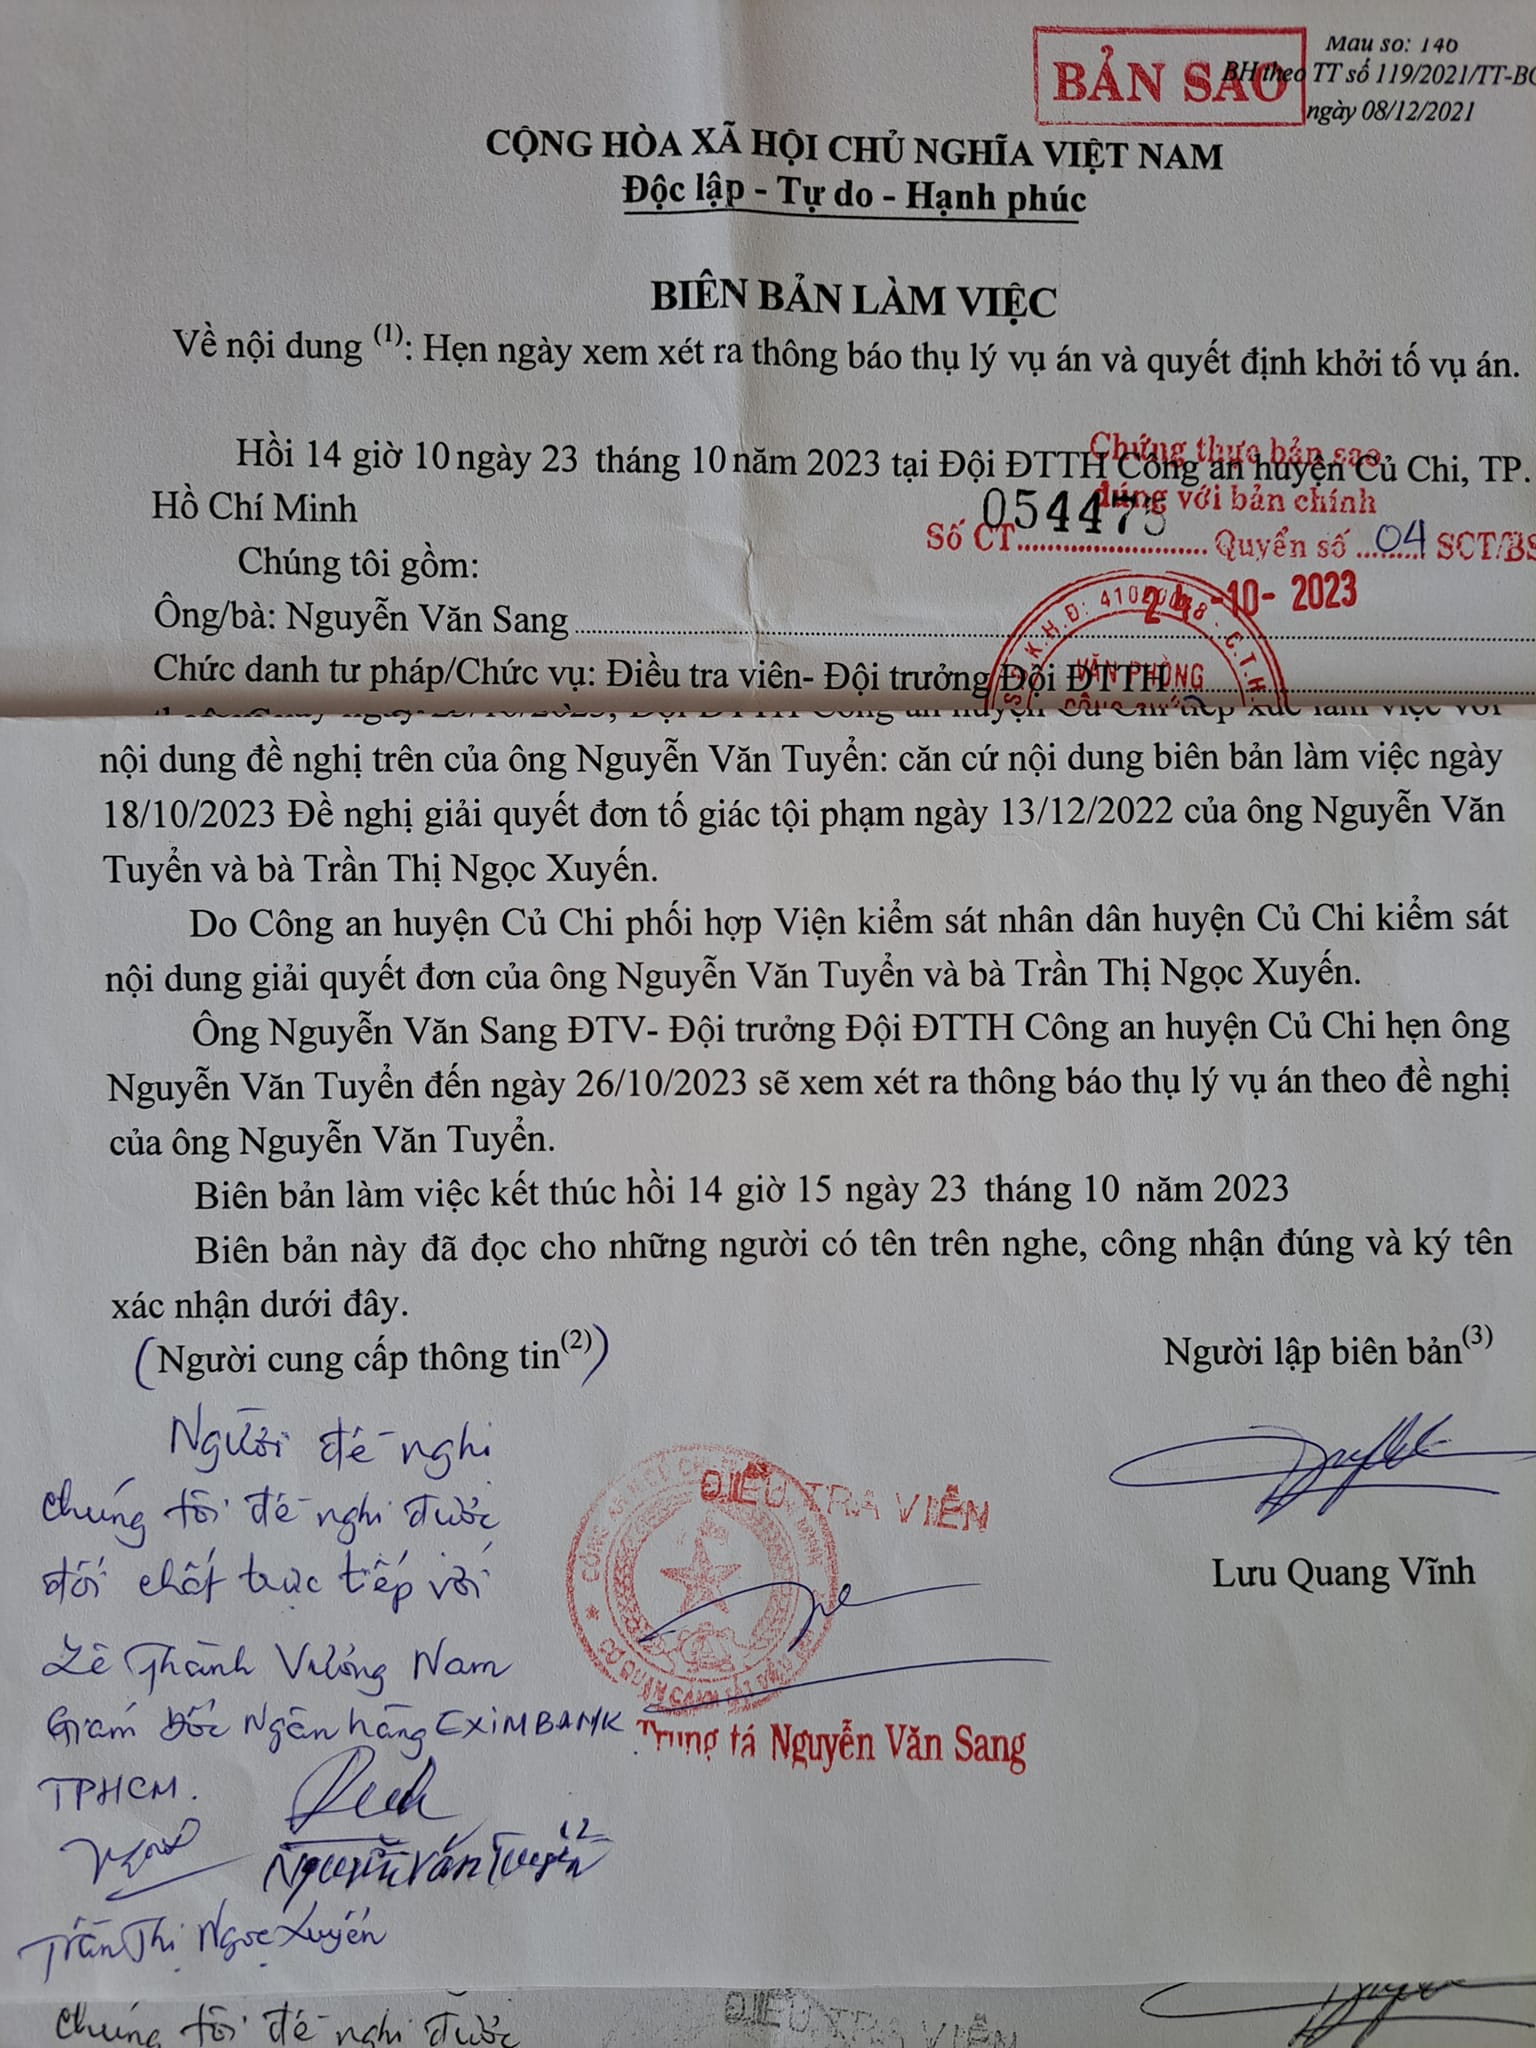 BẢN SAO
Mau so: 146
BH theo TT số 119/2021/TT-BC
ngày 08/12/2021
CỘNG HÒA XÃ HỘI CHỦ NGHĨA VIỆT NAM
Độc lập - Tự do - Hạnh phúc
BIÊN BẢN LÀM VIỆC
Về nội dung (1): Hẹn ngày xem xét ra thông báo thụ lý vụ án và quyết định khởi tố vụ án.
Hồi 14 giờ 10 ngày 23 tháng 10 năm 2023 tại Đội ĐTTH Công an huyện Củ Chi, TP.
Chứng thực bản sao
đúng với bản chính
Hồ Chí Minh
Số CT 054475 Quyển số 04 SCT/BS
Chúng tôi gồm:
24 -10- 2023
Ông/bà: Nguyễn Văn Sang
Chức danh tư pháp/Chức vụ: Điều tra viên- Đội trưởng Đội ĐTTH
VĂN PHÒNG
Đội ĐTTH Công an huyện Củ Chi tiếp xúc làm việc với
nội dung đề nghị trên của ông Nguyễn Văn Tuyển: căn cứ nội dung biên bản làm việc ngày
18/10/2023 Đề nghị giải quyết đơn tố giác tội phạm ngày 13/12/2022 của ông Nguyễn Văn
Tuyển và bà Trần Thị Ngọc Xuyến.
Do Công an huyện Củ Chi phối hợp Viện kiểm sát nhân dân huyện Củ Chi kiểm sát
nội dung giải quyết đơn của ông Nguyễn Văn Tuyển và bà Trần Thị Ngọc Xuyến.
Ông Nguyễn Văn Sang ĐTV- Đội trưởng Đội ĐTTH Công an huyện Củ Chi hẹn ông
Nguyễn Văn Tuyển đến ngày 26/10/2023 sẽ xem xét ra thông báo thụ lý vụ án theo đề nghị
của ông Nguyễn Văn Tuyển.
Biên bản làm việc kết thúc hồi 14 giờ 15 ngày 23 tháng 10 năm 2023
Biên bản này đã đọc cho những người có tên trên nghe, công nhận đúng và ký tên
xác nhận dưới đây.
(Người cung cấp thông tin(2))
Người lập biên bản(3)
Người đề nghị
chúng tôi đề nghị được
đối chất trực tiếp với
Lê Thành Vương Nam
Giám Đốc Ngân hàng EXIMBANK
TPHCM.
ĐIỀU TRA VIÊN
Lưu Quang Vĩnh
Trung tá Nguyễn Văn Sang
Nguyễn Văn Tuyển
Trần Thị Ngọc Xuyến
chúng tôi đề nghị được
ĐIỀU TRA VIÊN